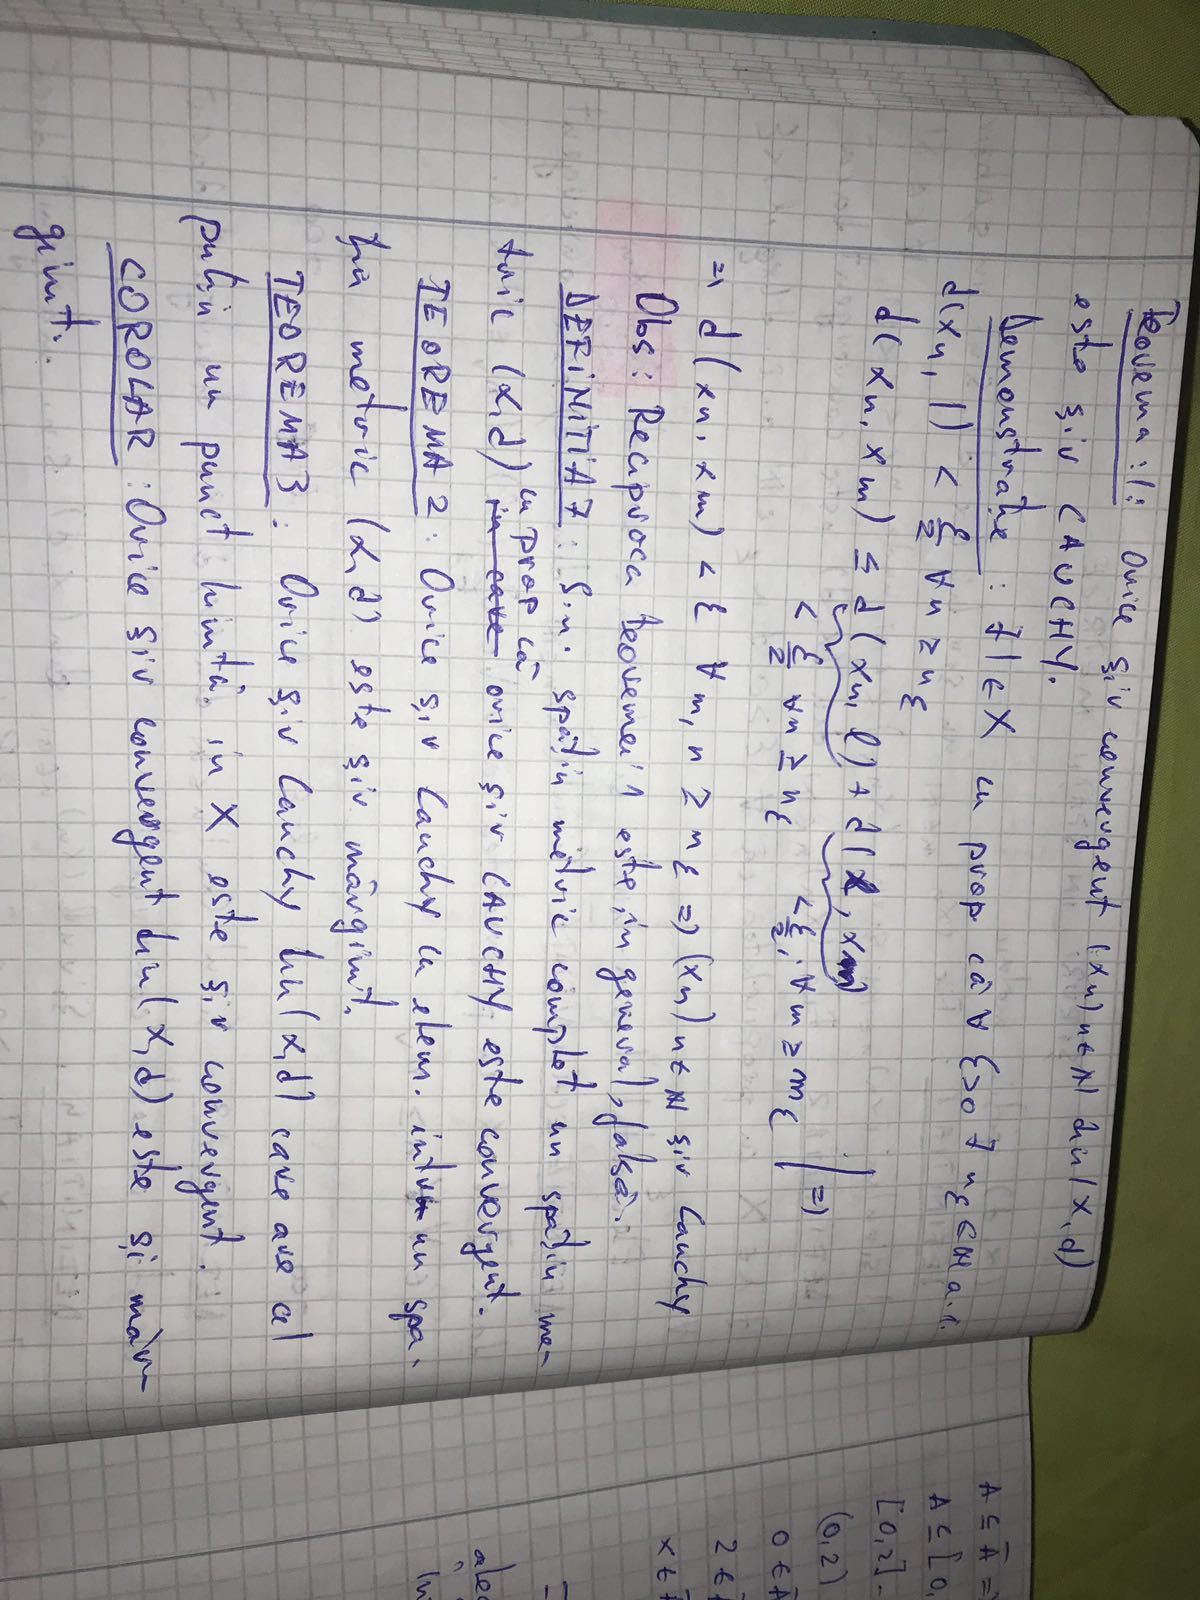 Teorema 1: Orice șir convergent (xn) n∈N din (X,d)
este șir CAUCHY.
Demonstrație: ∃ l ∈ X cu prop că ∀ ε>0 ∃ nε ∈ N a.î.
d(xn, l) < ε/2 ∀ n ≥ nε
d(xn, xm) ≤ d(xn, l) + d(l, xm)
< ε/2 ∀ n ≥ nε < ε/2, ∀ m ≥ mε | =>
=> d(xn, xm) < ε ∀ m, n ≥ nε => (xn) n∈N șir Cauchy
Obs: Reciproca teoremei 1 este, in general, falsă.
DEFINIȚIA 7: S.n. spațiu metric complet un spațiu me-
tric (X,d) cu prop că orice șir CAUCHY este convergent.
TEOREMA 2: Orice șir Cauchy cu elem. intr un spa-
țiu metric (X,d) este șir mărginit.
TEOREMA 3: Orice șir Cauchy din (X,d) care are cel
puțin un punct limită in X este șir convergent.
COROLAR: Orice șir convergent din (X,d) este și măr-
ginit.
A ⊆ Ā =
A ⊆ [0,
[0,2]
(0,2)
0 ∈ Ā
2 ∈
x ∈